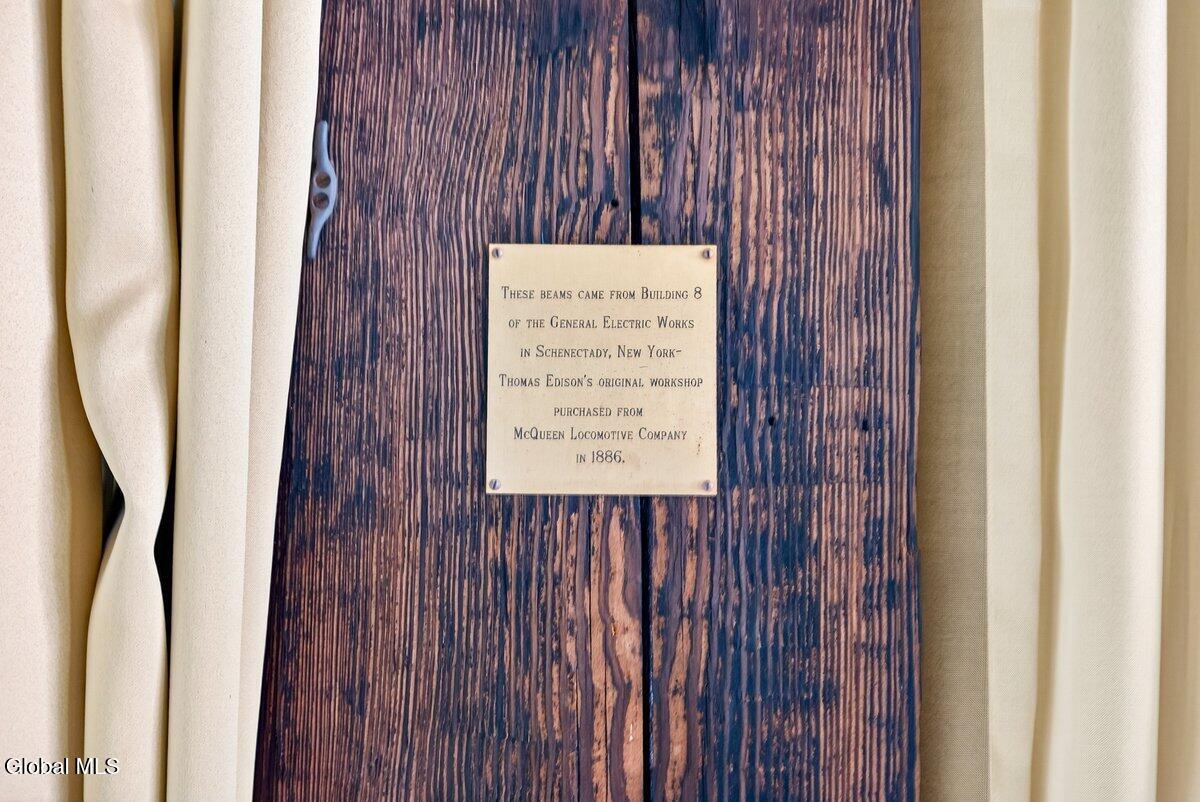 These beams came from Building 8
of the General Electric Works
in Schenectady, New York-
Thomas Edison's original workshop
purchased from
McQueen Locomotive Company
in 1886.
Global MLS